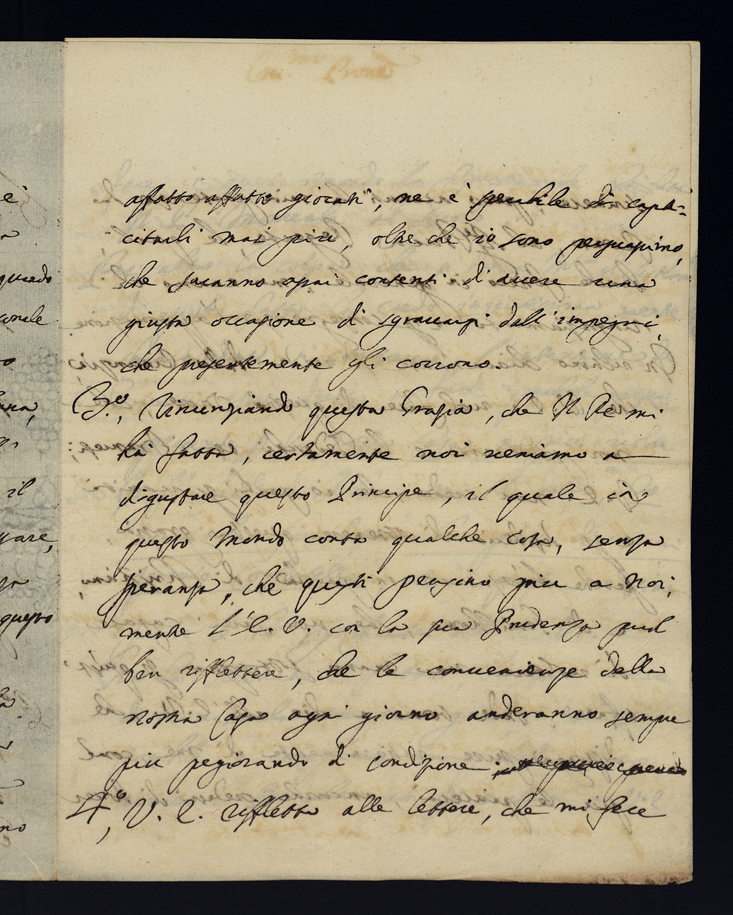 affatto affatto giocati, ne è sperabile di capa-
citarli mai più, oltre che io sono persuasissimo,
che saranno assai contenti di avere una
giusta occasione di sgravarsi dall'impegni,
che presentemente gli corrono.
3.º, Rinunziando questa Grazia, che Il Re mi
hà fatta, certamente noi veniamo a
disgustare questo Principe, il quale in
questo Mondo conta qualche cosa, senza
speranza, che questi pensino più a Noi;
mente l'E. V. con la sua Prudenza puol
ben riflettere, che le convenienze della
nostra Casa ogni giorno anderanno sempre
più pegiorando di condizione.
4º, V. E. rifletta alle lettere, che mi fece